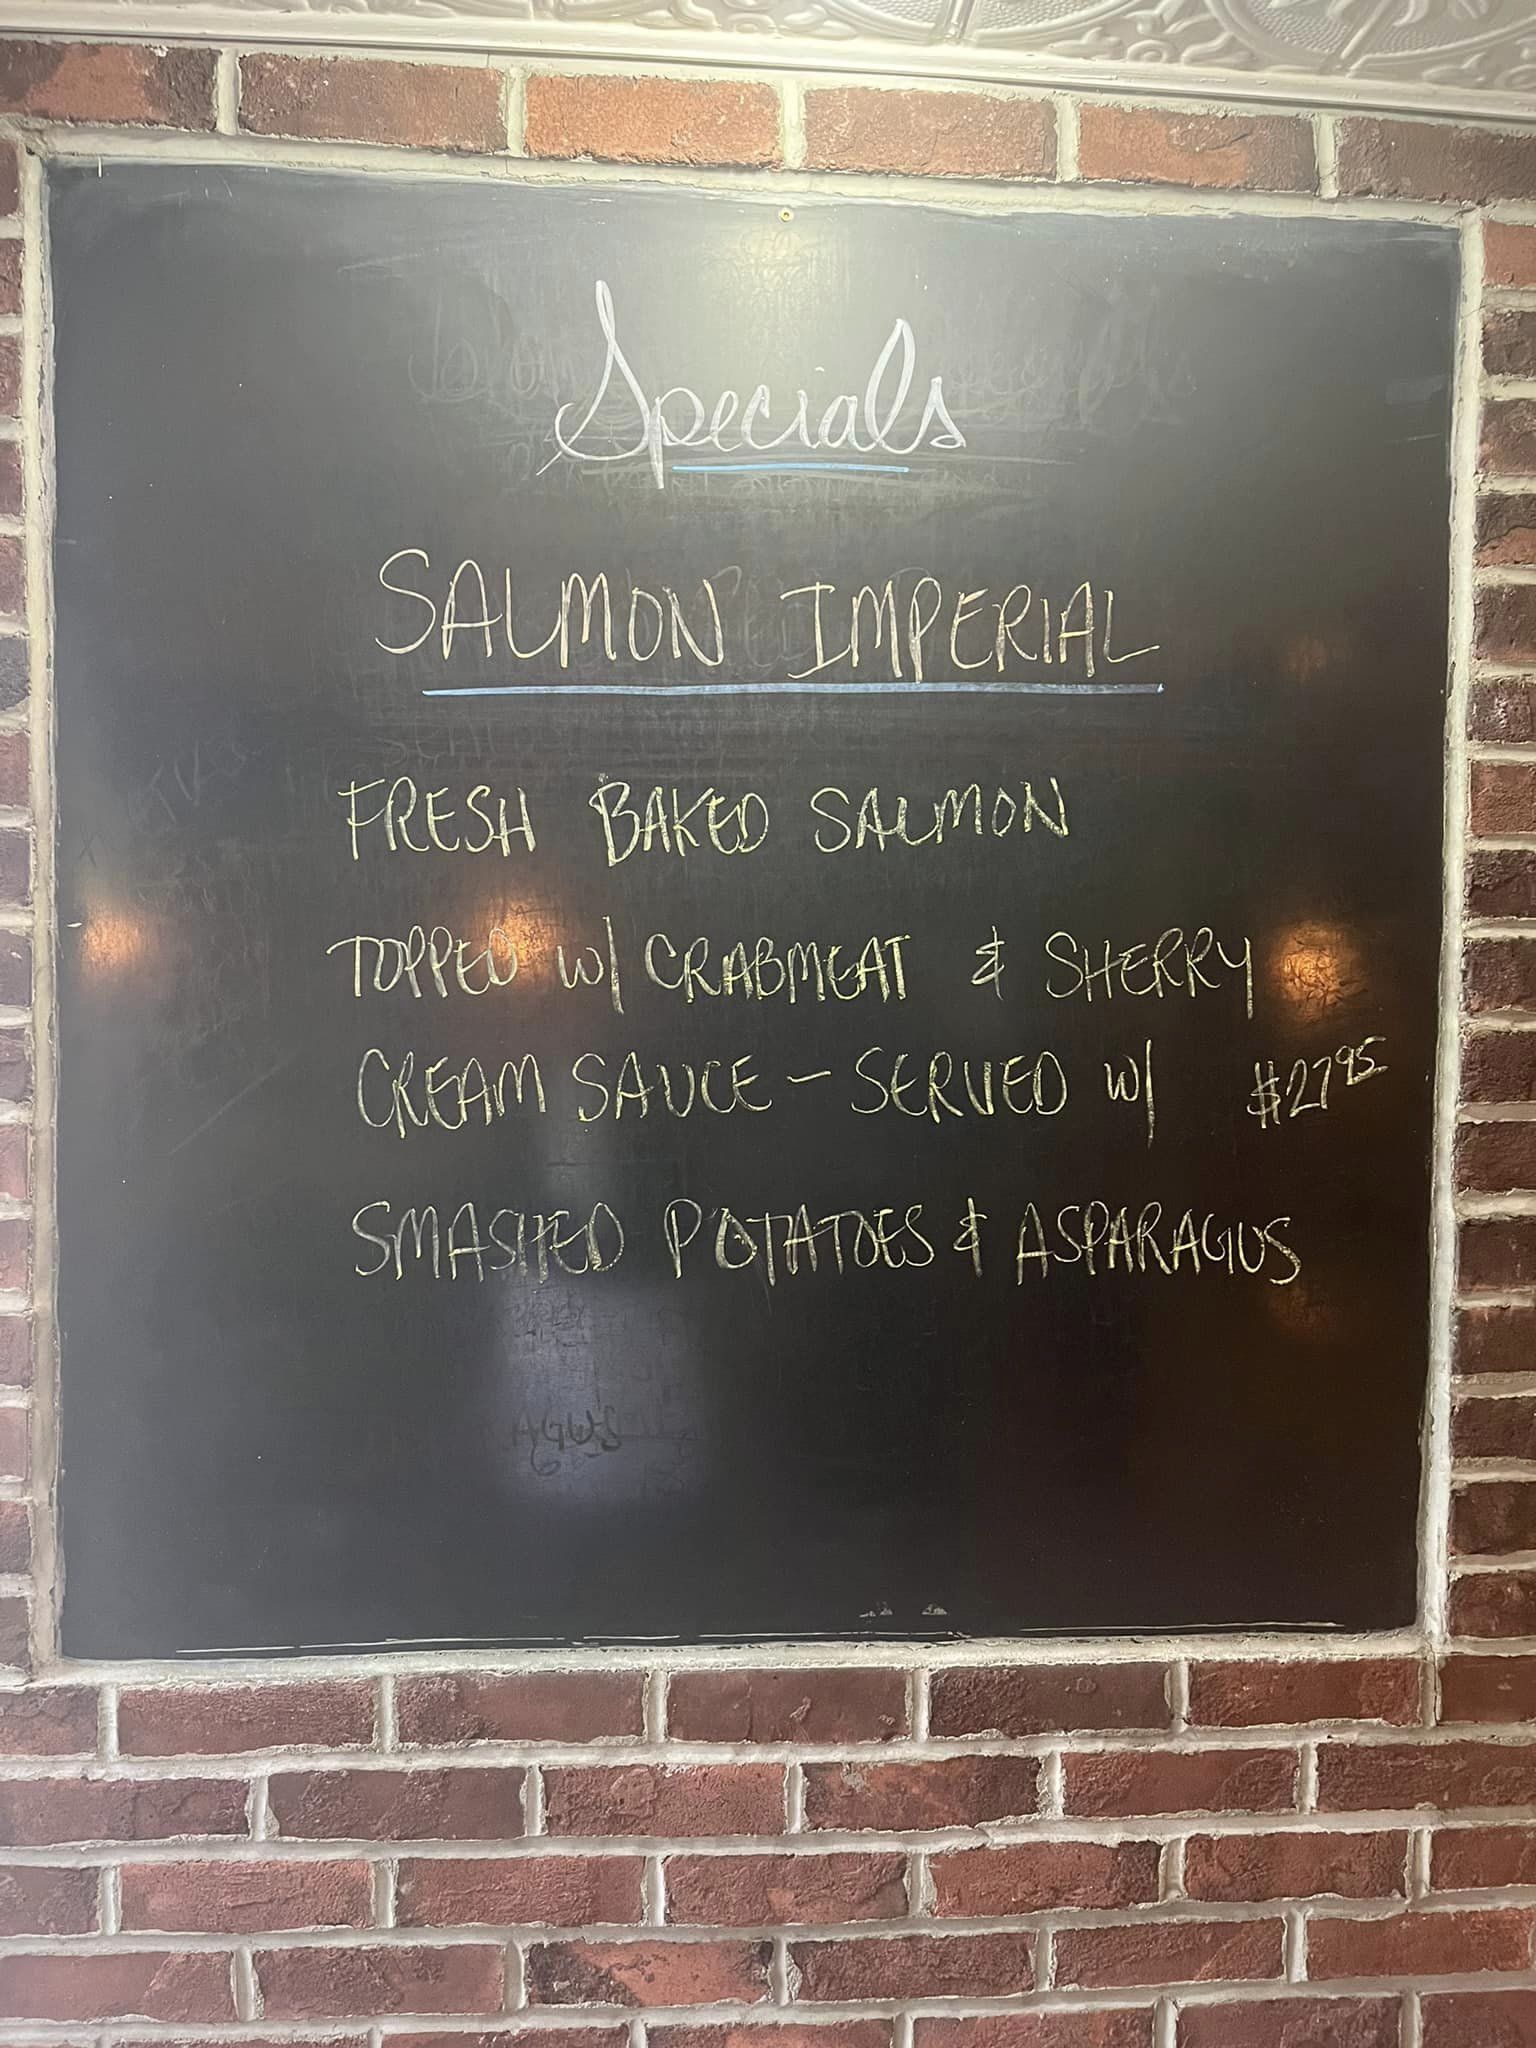 Specials
SALMON IMPERIAL
FRESH BAKED SALMON
TOPPED W/ CRABMEAT & SHERRY
CREAM SAUCE - SERVED W/ $27.95
SMASHED POTATOES & ASPARAGUS